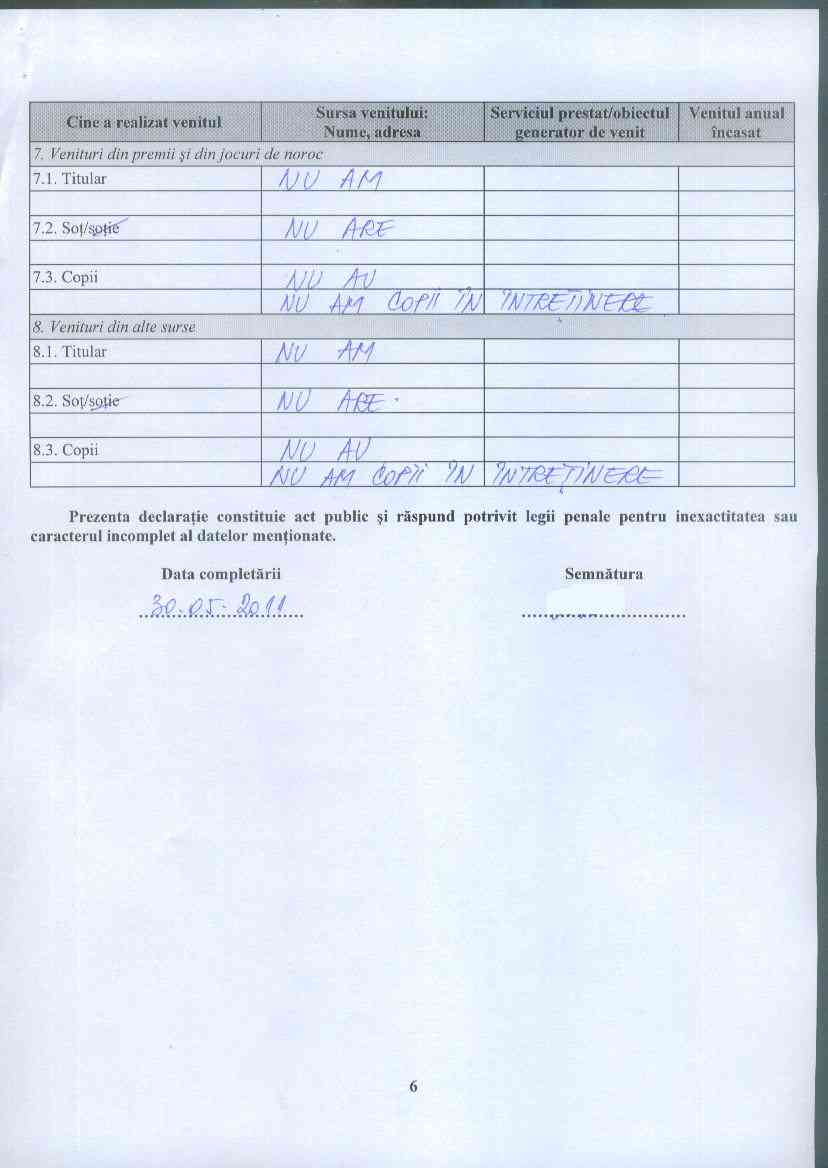 Cine a realizat venitul Sursa venitului: Nume, adresa Serviciul prestat/obiectul generator de venit Venitul anual încasat
7. Venituri din premii şi din jocuri de noroc
7.1. Titular NU AM
7.2. Soţ/soţie NU ARE
7.3. Copii NU AU
NU AM COPII ÎN ÎNTREŢINERE
8. Venituri din alte surse
8.1. Titular NU AM
8.2. Soţ/soţie NU ARE
8.3. Copii NU AU
NU AM COPII ÎN ÎNTREŢINERE
Prezenta declaraţie constituie act public şi răspund potrivit legii penale pentru inexactitatea sau
caracterul incomplet al datelor menţionate.
Data completării Semnătura
30.05.2011
6